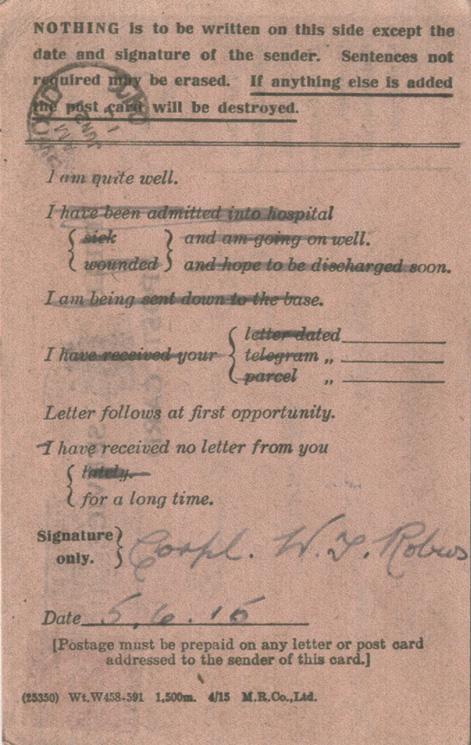 NOTHING is to be written on this side except the
date and signature of the sender. Sentences not
required may be erased. If anything else is added
the post card will be destroyed.
I am quite well.
I have been admitted into hospital
sick and am going on well.
wounded and hope to be discharged soon.
I am being sent down to the base.
letter dated
I have received your telegram „
parcel „
Letter follows at first opportunity.
I have received no letter from you
lately.
for a long time.
Signature
only. Corpl. W. J. Robus
Date 5.6.15
[Postage must be prepaid on any letter or post card
addressed to the sender of this card.]
(25350) Wt.W458-591 1,500m. 4/15 M.R.Co.,Ltd.